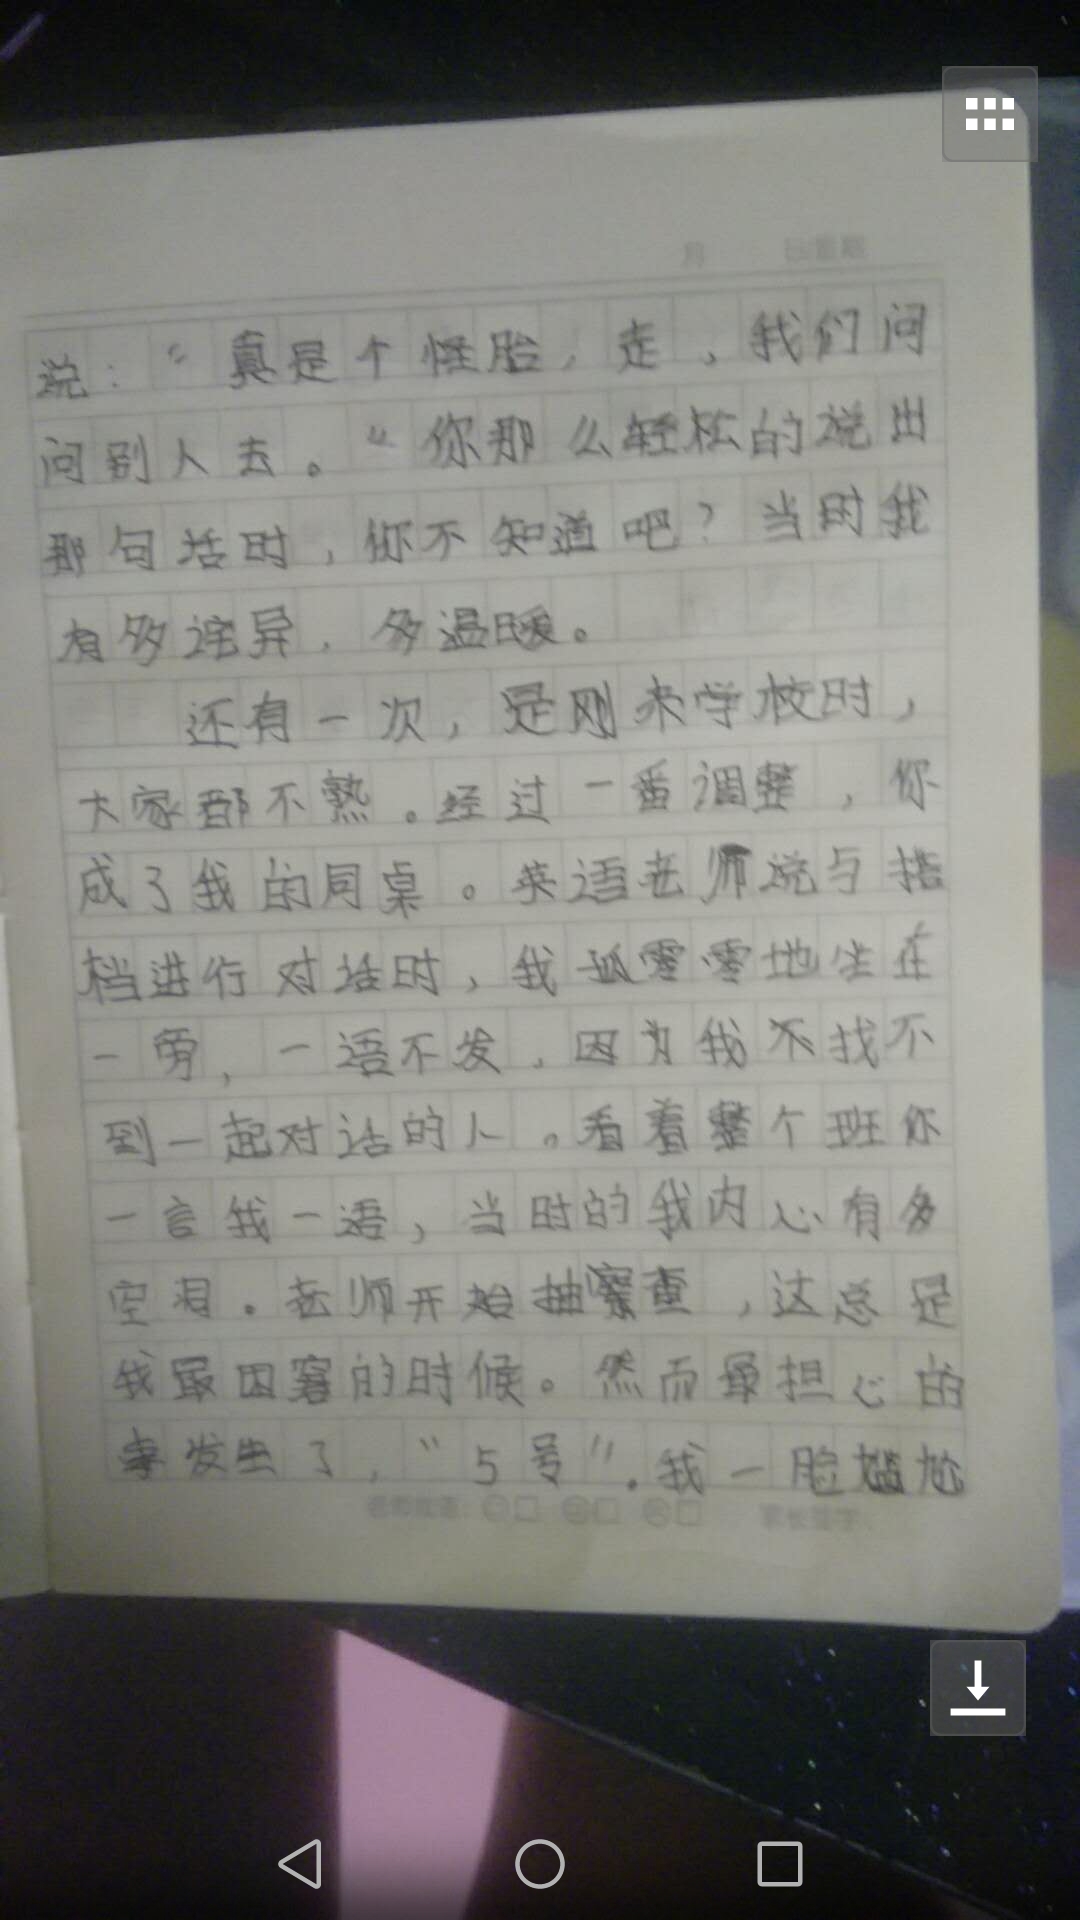 说：“真是个怪胎，走，我们问
问别人去。“你那么轻松的说出
那句话时，你不知道吧？当时我
有多诧异，多温暖。
还有一次，是刚来学校时，
大家都不熟。经过一番调整，你
成了我的同桌。英语老师说与搭
档进行对话时，我孤零零地坐在
一旁，一语不发，因为我 找不
到一起对话的人。看着整个班你
一言我一语，当时的我内心有多
空洞。老师开始抽察查，这总是
我最困窘的时候。然而最担心的
事发生了，“5号”.我一脸尴尬